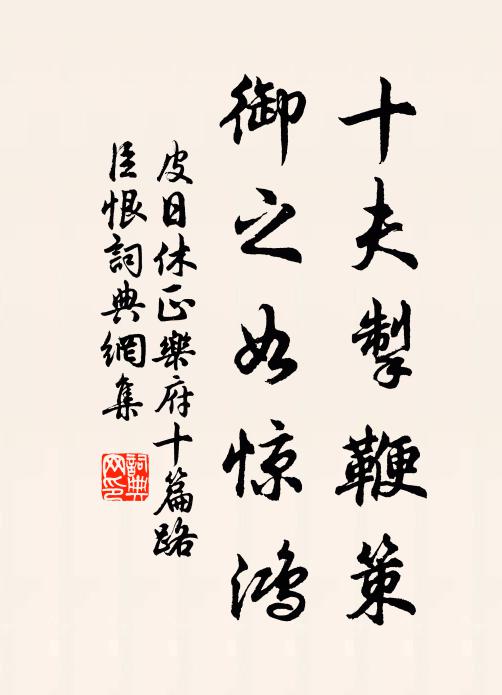 十夫掣鞭策
御之如惊鸿
皮日休正樂府十篇路
臣恨詞典網集
詞典网印